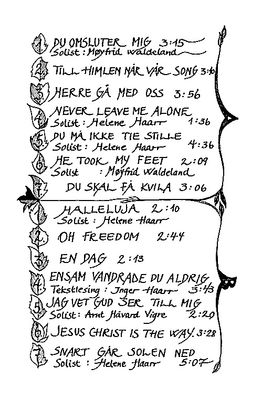 1 DU OMSLUTER MIG 3:15
Solist: Møyfrid Waldeland
2 TILL HIMLEN NÅR VÅR SONG 3:16
3 HERRE GÅ MED OSS 3:56
4 NEVER LEAVE ME ALONE
Solist: Helene Haarr 1:36
5 DU MÅ IKKE TIE STILLE
Solist: Helene Haarr 4:36
6 HE TOOK MY FEET 2:09
Solist : Møyfrid Waldeland
7 DU SKAL FÅ KVILA 3:06
A
1 HALLELUJA 2:10
Solist: Helene Haarr
2 OH FREEDOM 2:44
3 EN DAG 2:13
4 ENSAM VANDRADE DU ALDRIG
Tekstlesing: Inger Haarr 5:43
5 JAG VET GUD SER TILL MIG
Solist: Arnt Håvard Vigre 2:20
B
6 JESUS CHRIST IS THE WAY. 3:28
7 SNART GÅR SOLEN NED
Solist: Helene Haarr 5:07